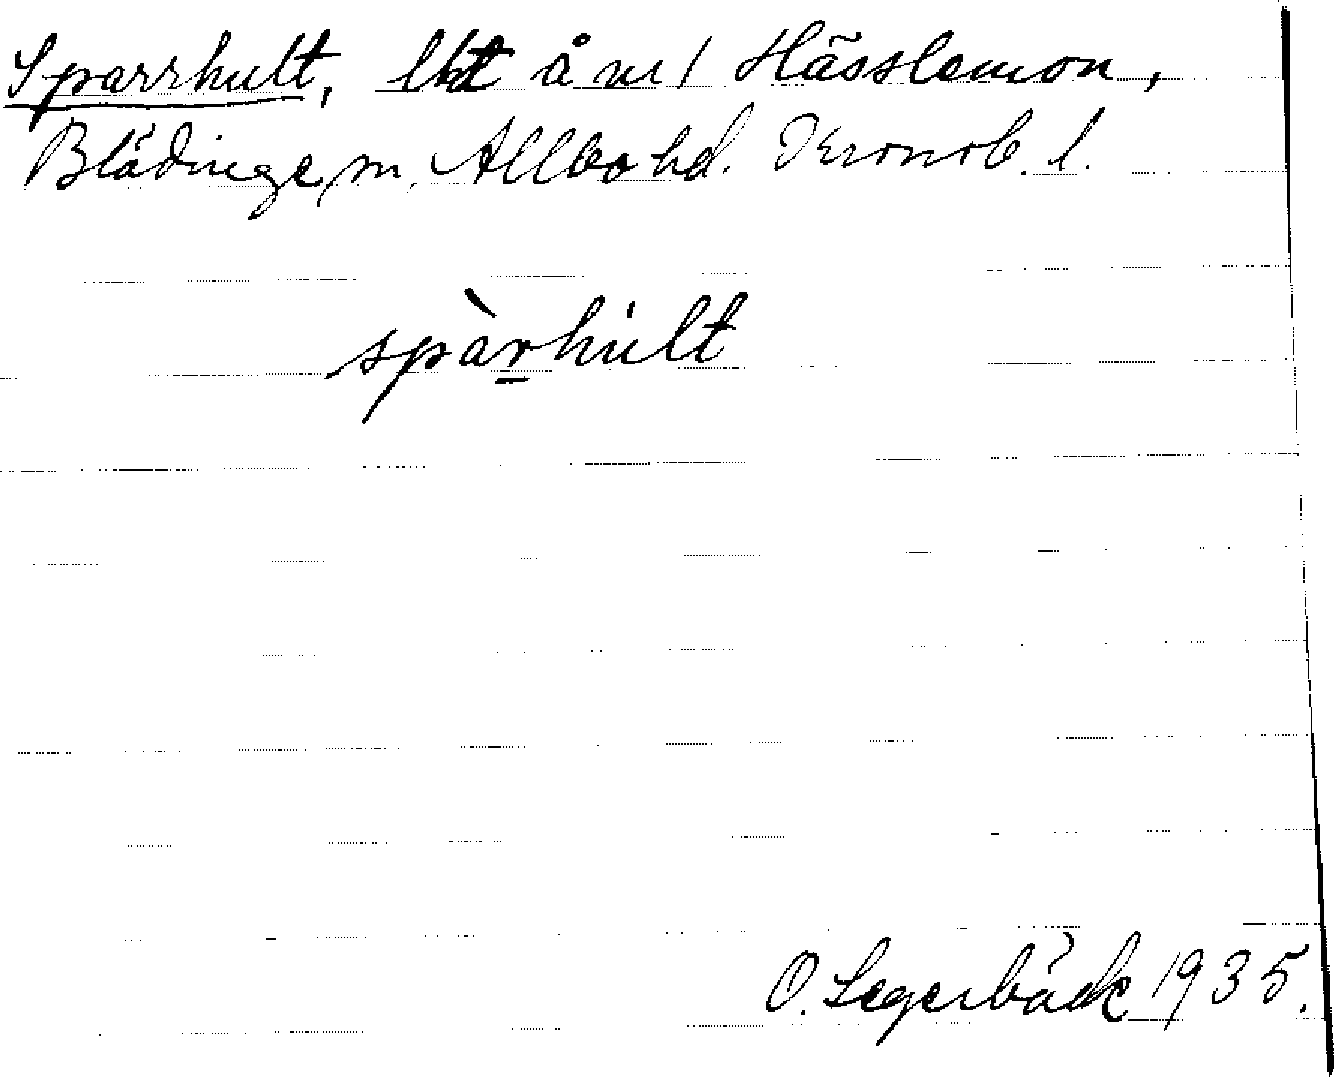 Sparrhult, lht å nr 1 Hässlemon,
Blädinge sn, Allbo hd. Kronob. l.
spàrhult
O. Segerbäck 1935.